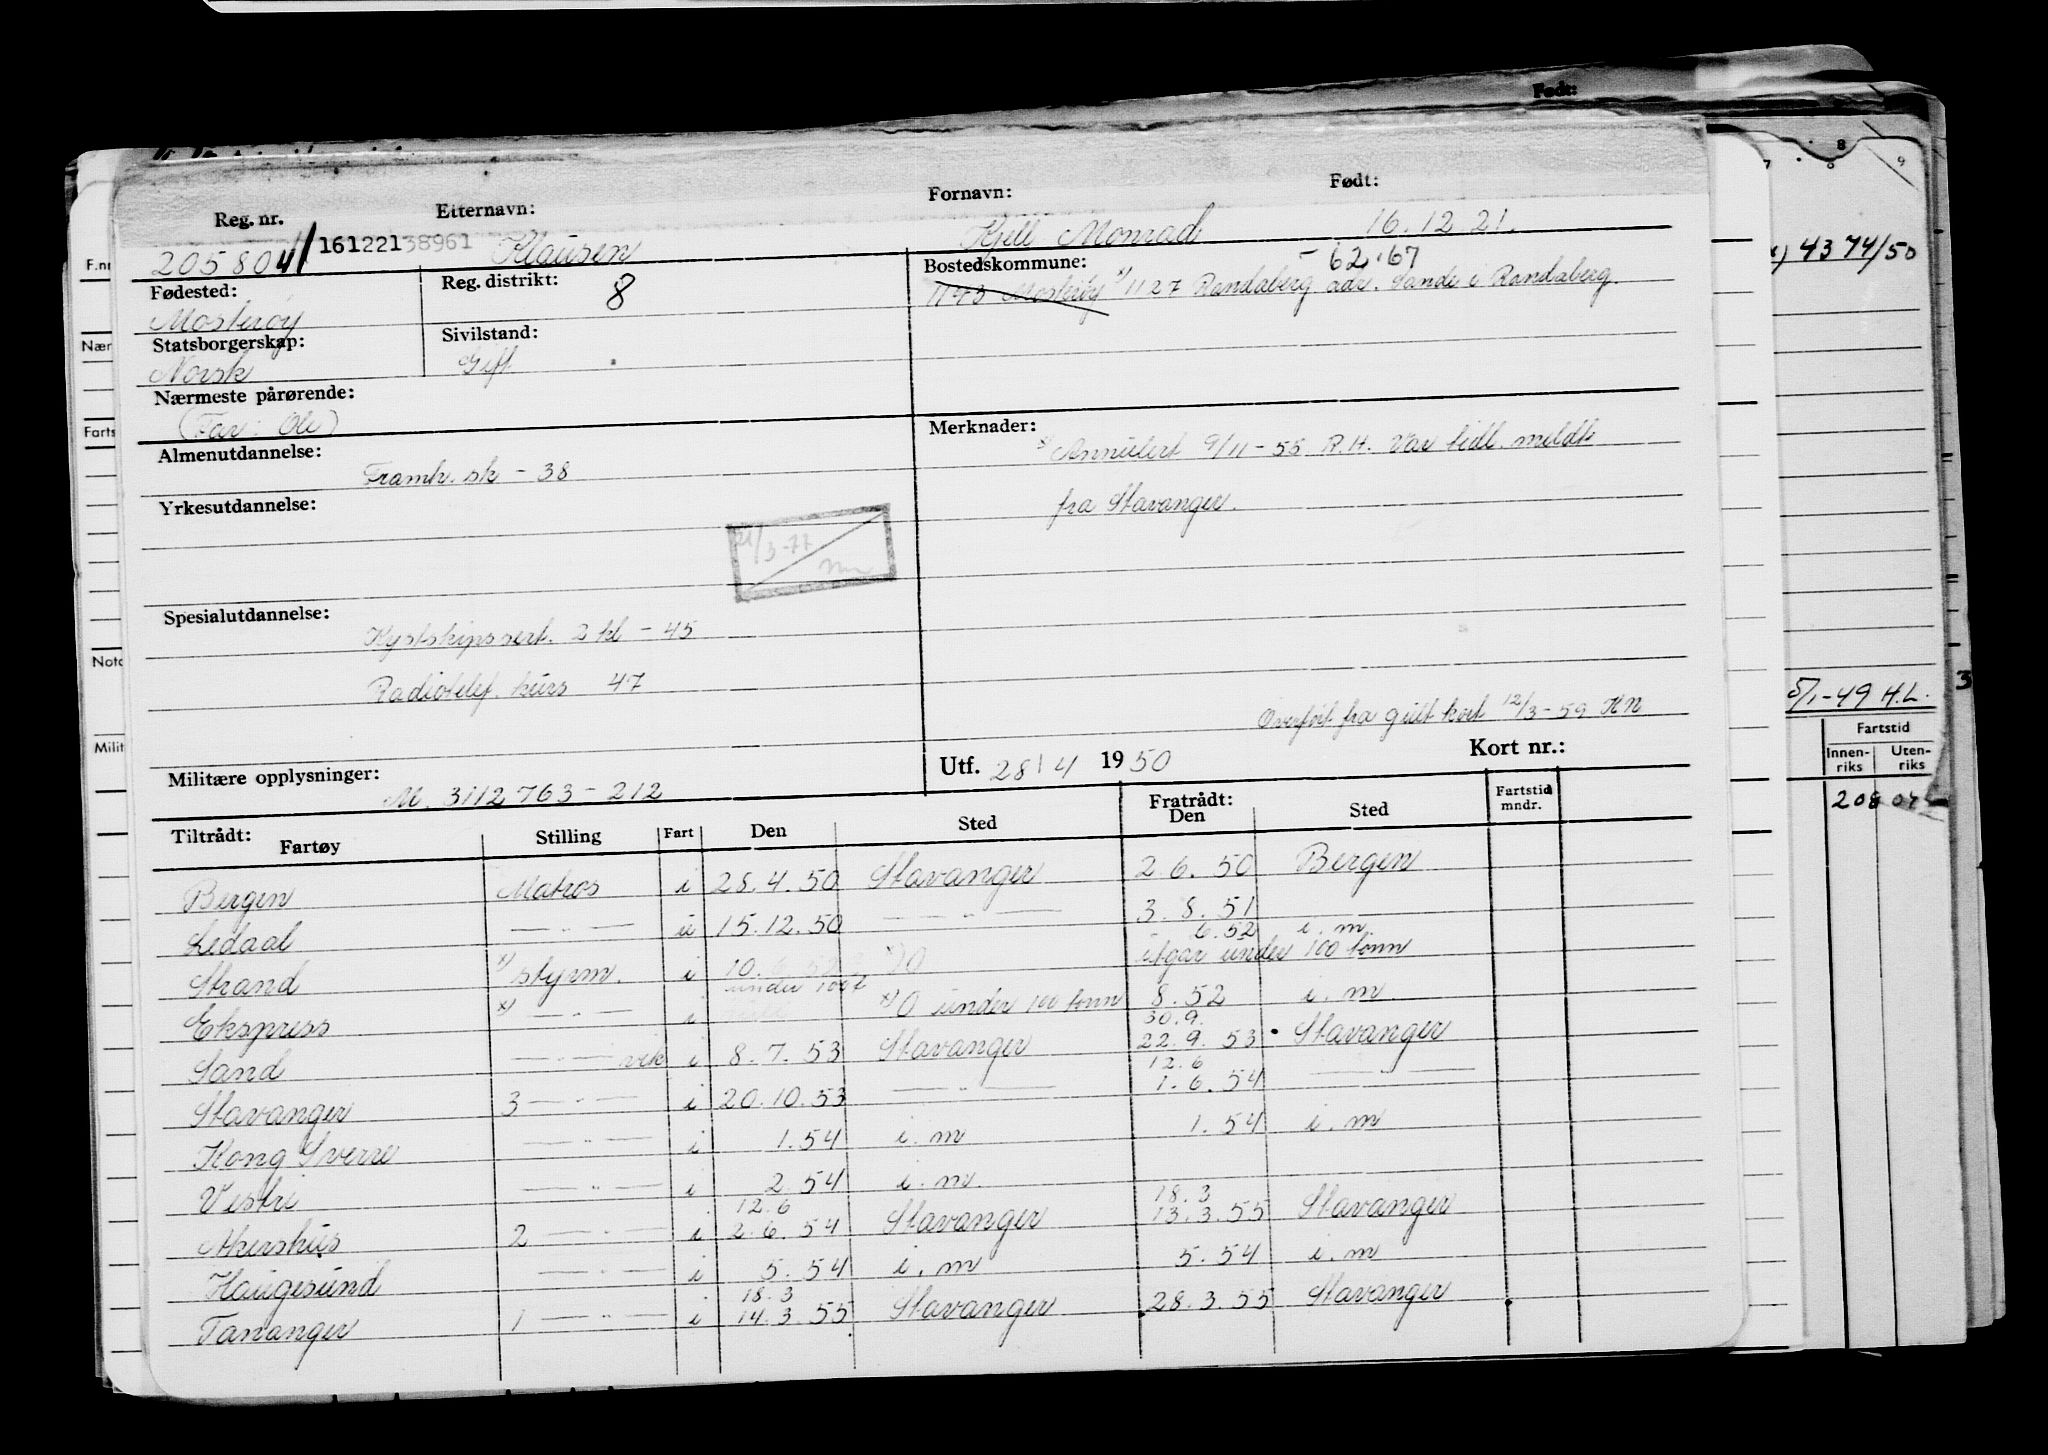 Født:
Reg. nr. Etternavn: Fornavn: Født:
205804/ 16122138961 Klausen Kjell Monrad 16.12 21.
Fødested: Reg. distrikt: 8 Bostedskommune: - 62.67
Mosterøy 1143 Mosterøy x) 1127 Randaberg adr. Sande i Randaberg.
Statsborgerskap: Sivilstand:
Norsk Gift
Nærmeste pårørende:
(Far: Ole)
Merknader:
Almenutdannelse: x) Annulert 9/11-55 R.H. Var tidl. meldt
Framh. sk - 38
fra Stavanger.
Yrkesutdannelse:
/3-77
Spesialutdannelse:
Kystskipssert. 2 kl - 45
Radiotelef. kurs 47
Overført fra gult kort 12/3-59 KN
Militære opplysninger: Utf. 28/4 1950 Kort nr.:
M. 3112763-212
Tiltrådt: Fratrådt:
Fartøy Stilling Fart Den Sted Den Sted Fartstid mndr.
Bergen Matros i 28.4.50 Stavanger 2 6. 50 Bergen
Ledaal — " — u 15.12.50 — " — 3. 8. 51
6.52 i. m.
Strand x) styrm. i 10. x) O utgår under 100 tonn
under 100t
Ekspress x) — " — i x) O under 100 tonn 8. 52 i. m.
30.9.
Sand — " — vik i 8. 7. 53 Stavanger 22. 9. 53 Stavanger
12.6
Stavanger 3 — " — i 20.10.53 — " — 1. 6. 54 — " —
Kong Sverre — " — i 1.54 i. m 1. 54 i. m
Vestri — " — i 2. 54 i. m.
12.6 18.3
Akershus 2 — " — i 2.6. 54 Stavanger 13.3.55 Stavanger
Haugesund — " — i 5. 54 i. m 5. 54 i. m
18.3
Tananger 1 — " — i 14.3.55 Stavanger 28.3.55 Stavanger
F.nr
Nær
Farts
Nota
Milit
7 8 9
x) 4374/50
5/1-49 H.L.
3
Fartstid
Innen-riks Uten-riks
208